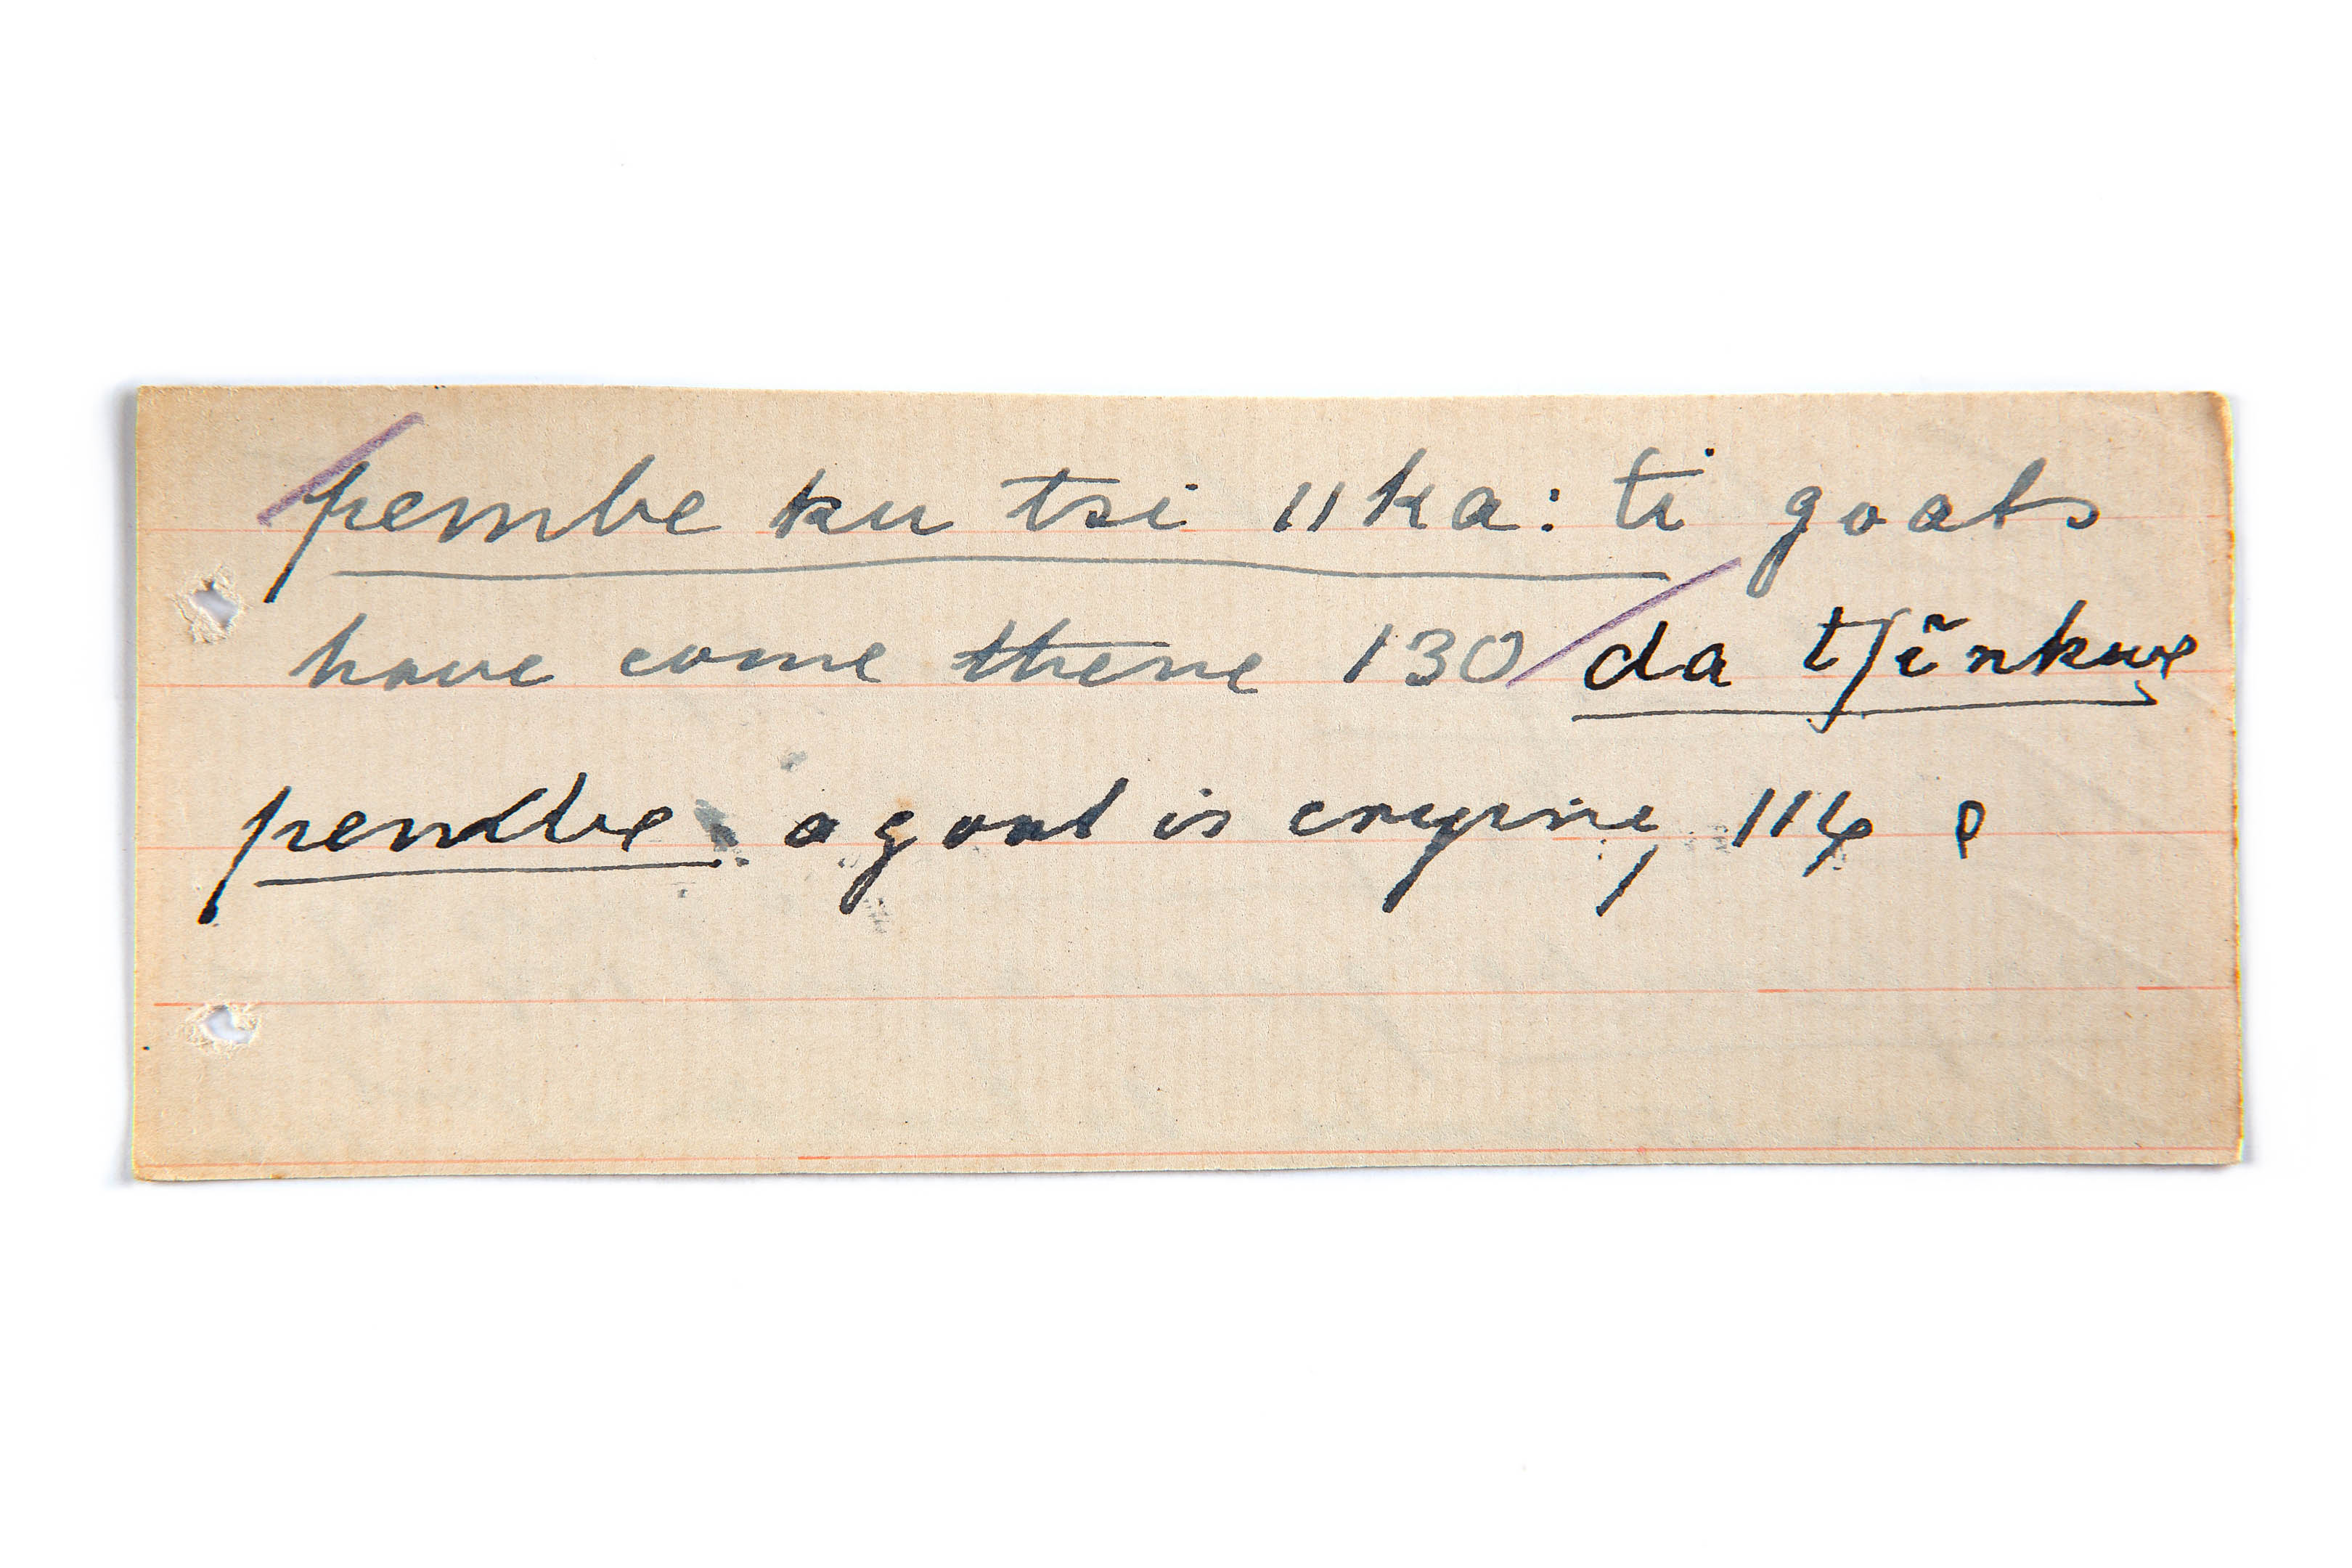 pembe ku tsi ǁka: ti goats
have come there 130 / da tʃĩnkwe
pembe. a goat is crying, 114 P